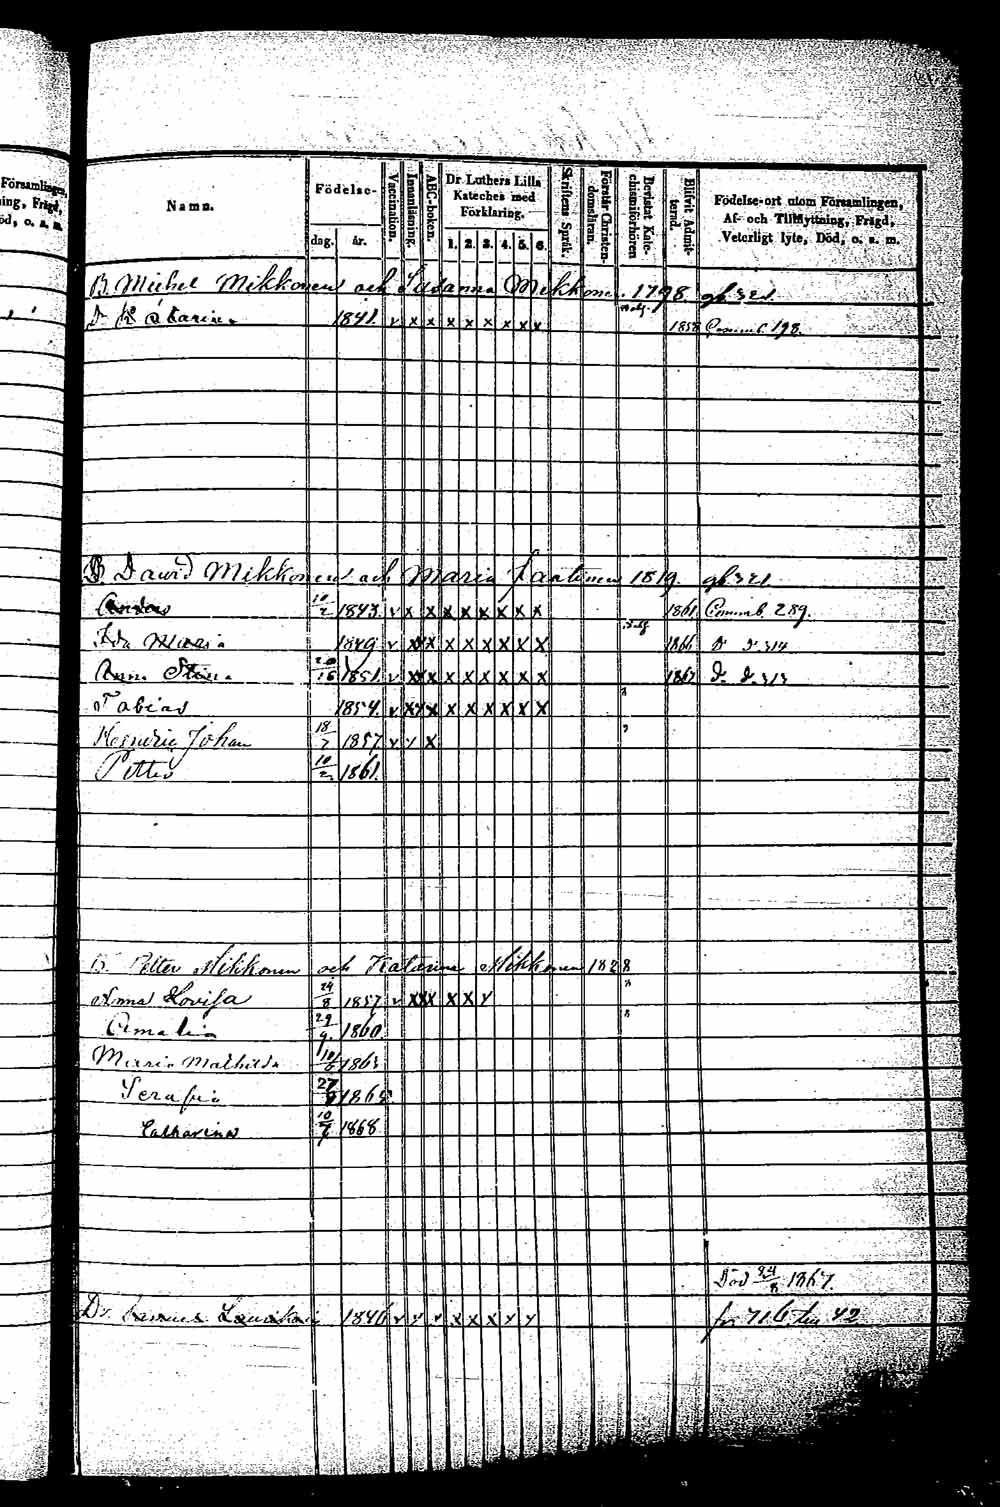 Församlingen,
ning, Frägd,
öd, o. s. m.
Namn.
Födelse-
dag. år.
Vaccination.
Innanläsning.
ABC-boken.
Dr Luthers Lilla Kateches med Förklaring.
1. 2. 3. 4. 5. 6.
Skriftens Språk.
Förstår Christendomsläran.
Bevistat Katechismiförhören
Blifvit Admitterad.
Födelse-ort utom Församlingen, Af- och Tillflyttning, Frägd, Veterligt lyte, Död, o. s. m.
B. Michel Mikkonen och Susanna Mikkonen 1798.
Katarina 1841. v x x x x x x x x 1858 Commb. 198.
B. David Mikkonen och Maria 1819.
Anders 10/2 1843. v x x x x x x x x 1861 Commb. 289.
Ida Maria 1849 v x x x x x x x x 1866
Anna Stina 1851. v x x x x x x x x 1867
Tobias 1854. v x x x x x x x x
Henric Johan 18/7 1857 v v x
Petter 10/2 1861.
B. Petter Mikkonen och Katarina Mikkonen 1828
Anna Lovisa 24/8 1857 v x x x x x v
Amalia 29/9 1860.
Maria Mathilda 1863
Serafia 1865
Catharina 1868
Död 24/8 1867.
Dr. 1846 v v v x x x v v